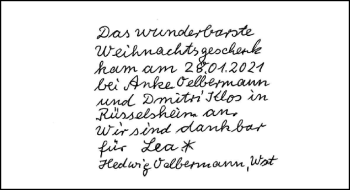 Das wunderbarste
Weihnachtsgeschenk
kam am 28.01.2021
bei Anke Oelbermann
und Dmitri Illos in
Rüsselsheim an.
Wir sind dankbar
für Lea *
Hedwig Oelbermann, Wst